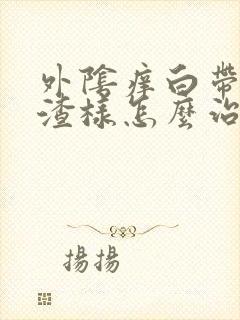 外陰痒白帶
渣樣怎麼治
揚揚